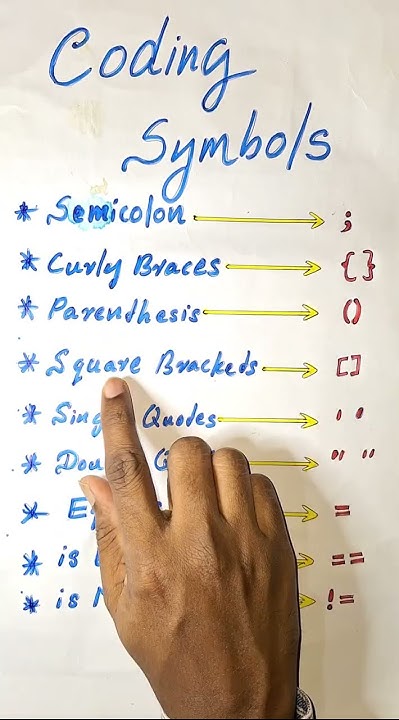 Coding
Symbols
* Semicolon → ;
* Curly Braces → { }
* Parenthesis → ()
* Square Brackeds → []
* Quodes → ' '
* → " "
* → =
* is → ==
* is → !=